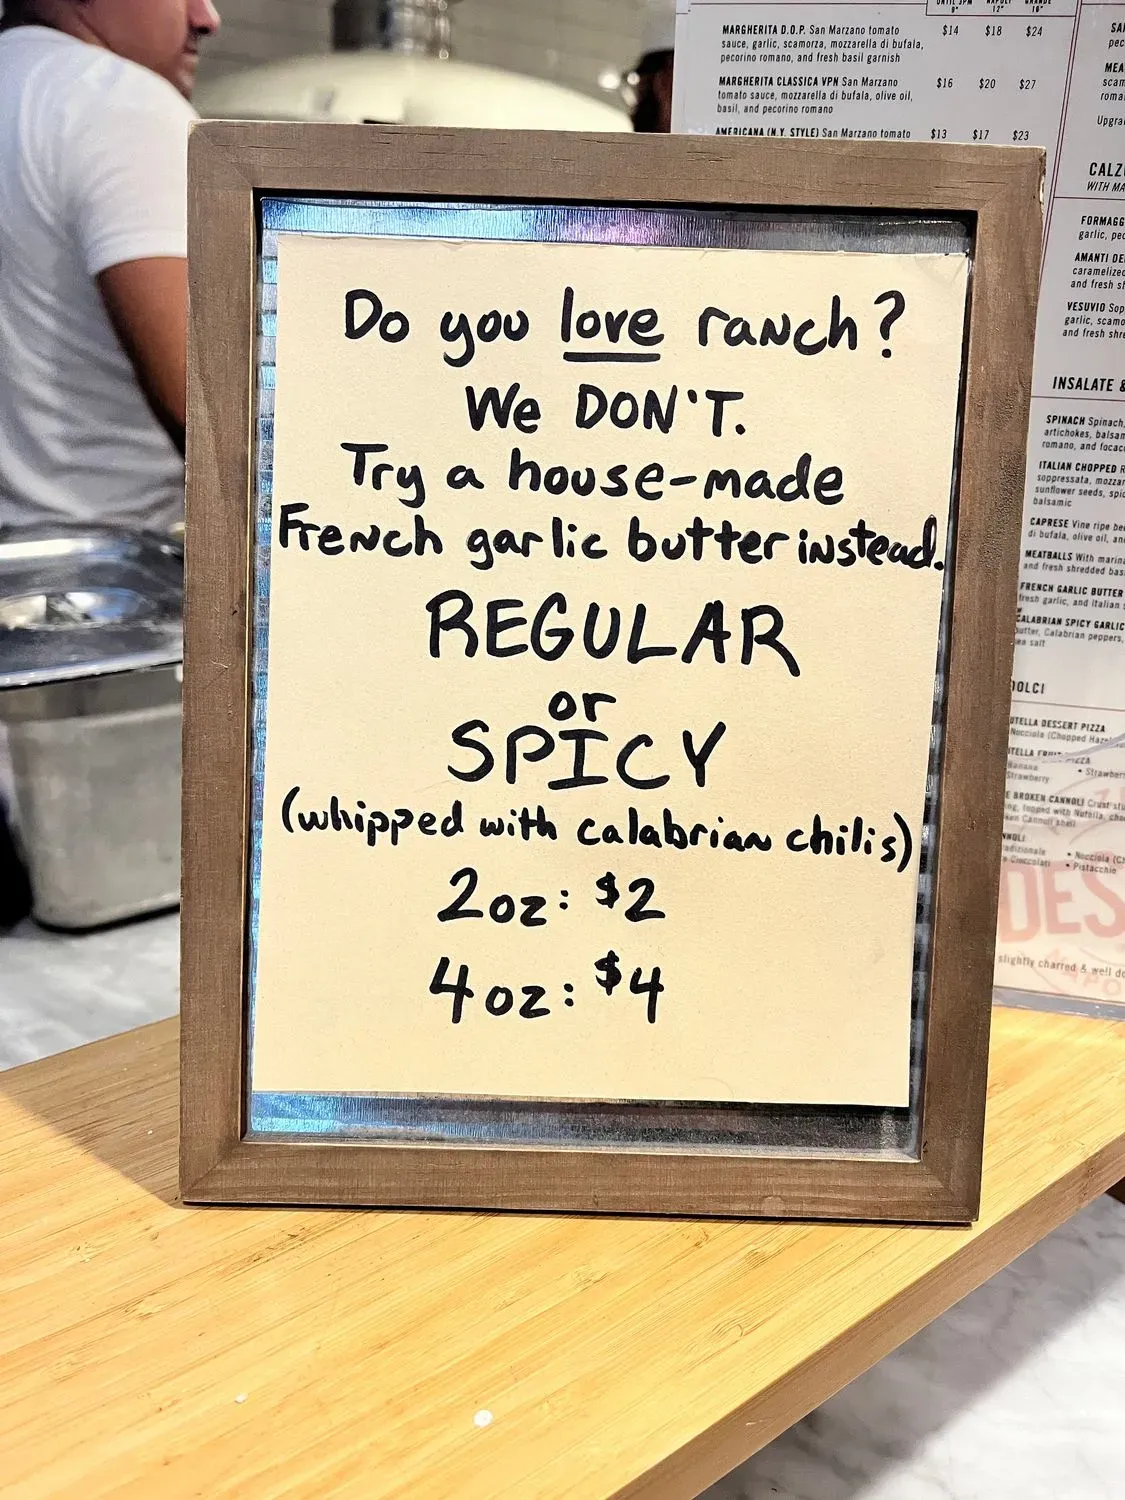 Do you love ranch?
We DON'T.
Try a house-made
French garlic butter instead.
REGULAR
or
SPICY
(whipped with calabrian chilis)
2oz: $2
4oz: $4
UNTIL 3PM NAPOLI GRANDE
9" 12" 16"
MARGHERITA D.O.P. San Marzano tomato $14 $18 $24
sauce, garlic, scamorza, mozzarella di bufala,
pecorino romano, and fresh basil garnish
MARGHERITA CLASSICA VPN San Marzano $16 $20 $27
tomato sauce, mozzarella di bufala, olive oil,
basil, and pecorino romano
AMERICANA (N.Y. STYLE) San Marzano tomato $13 $17 $23
Upgra
CALZ
WITH MA
FORMAGG
garlic, pec
AMANTI DE
caramelized
and fresh s
VESUVIO Sop
garlic, scamo
and fresh shre
INSALATE &
SPINACH Spinach,
artichokes, balsam
romano, and focacc
ITALIAN CHOPPED R
soppressata, mozzar
sunflower seeds, spic
balsamic
CAPRESE Vine ripe be
di bufala, olive oil, an
MEATBALLS With marina
and fresh shredded bas
FRENCH GARLIC BUTTER
fresh garlic, and Italian s
CALABRIAN SPICY GARLIC
butter, Calabrian peppers,
sea salt
DOLCI
UTELLA DESSERT PIZZA
Nocciola (Chopped Haze
Banana
Strawberry • Strawber
E BROKEN CANNOLI Crust stu
ing, topped with Nutella, cho
ken Cannoli shell
NNOLI
radizionale • Nocciola (C
e Cioccolati • Pistacchio
DES
slightly charred & well do